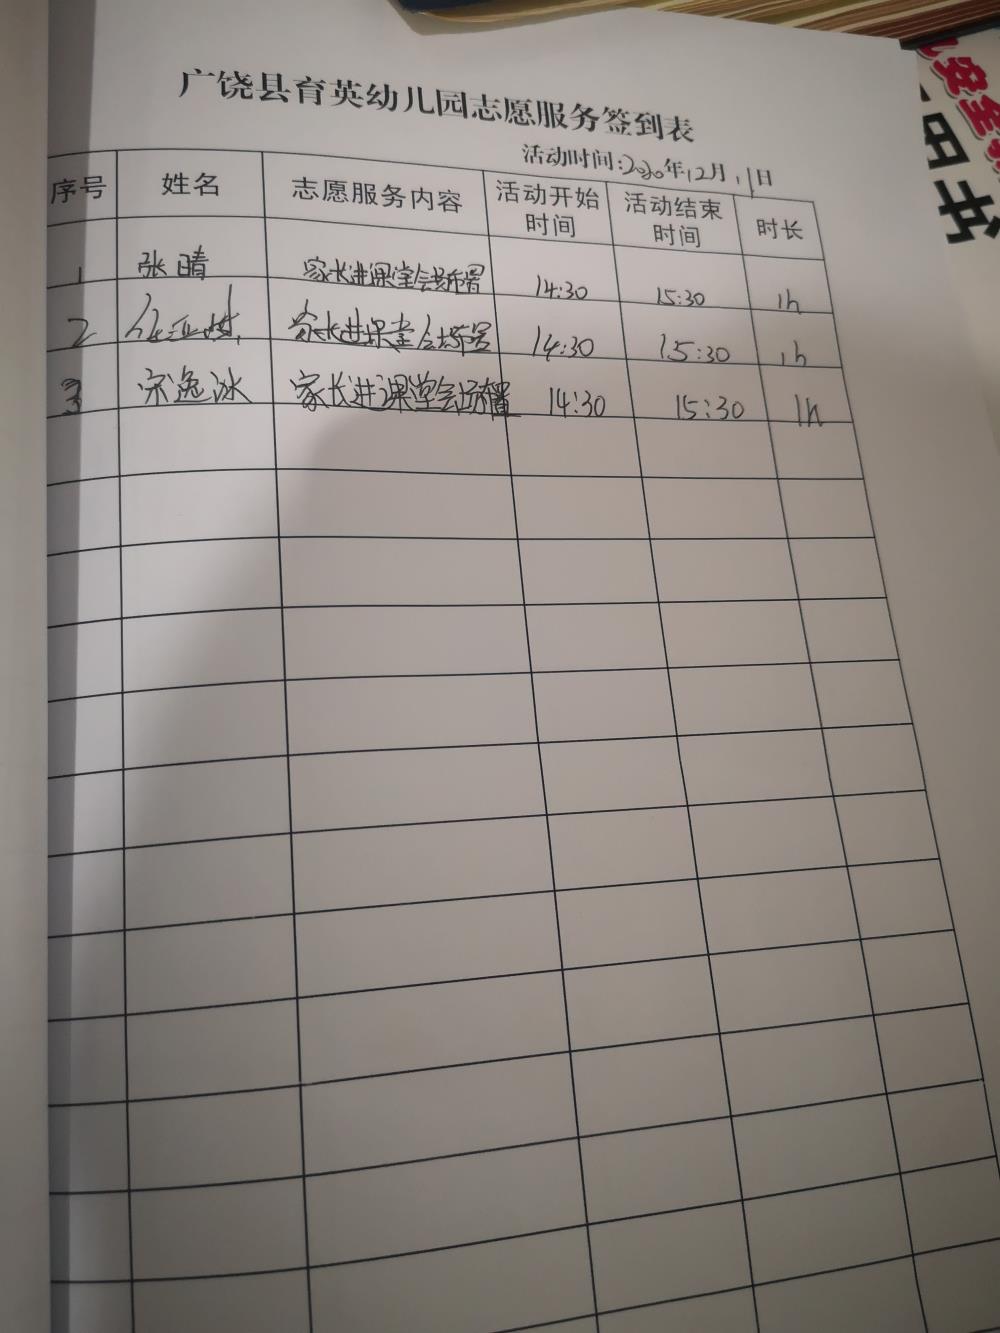 广饶县育英幼儿园志愿服务签到表
活动时间:2020年12月11日
序号 姓名 志愿服务内容 活动开始时间 活动结束时间 时长
1 张晴 家长进课堂会场布置 14:30 15:30 1h
2 任亚 家长进课堂会场布置 14:30 15:30 1h
3 宋逸冰 家长进课堂会场布置 14:30 15:30 1h
安全
书